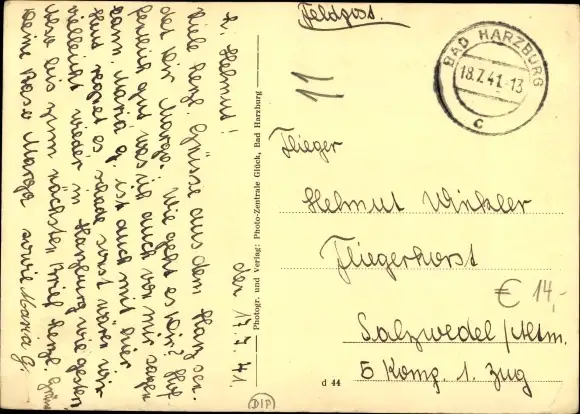 Feldpost.
BAD HARZBURG
18.7.41.-13
c
11
den 17.7.41.
L. Helmut!
Viele herzl. Grüsse aus dem Harz sen-
det dir Marga. Wie geht es dir? Hof-
fentlich gut was ich auch von mir sagen
kann. Maria G. ist auch mit hier.
Heut regnet es, schade sonst wären wir
vielleicht wieder in Harzburg wie gestern
Also bis zum nächsten Brief herzl. Grüsse
deine Base Marga sowie Maria G.
Photogr. und Verlag: Photo-Zentrale Glück, Bad Harzburg
Flieger
Helmut Winkler
Fliegerhorst
€ 14,-
Salzwedel/Altm.
5 Komp. 1. Zug
d 44
(DIP)